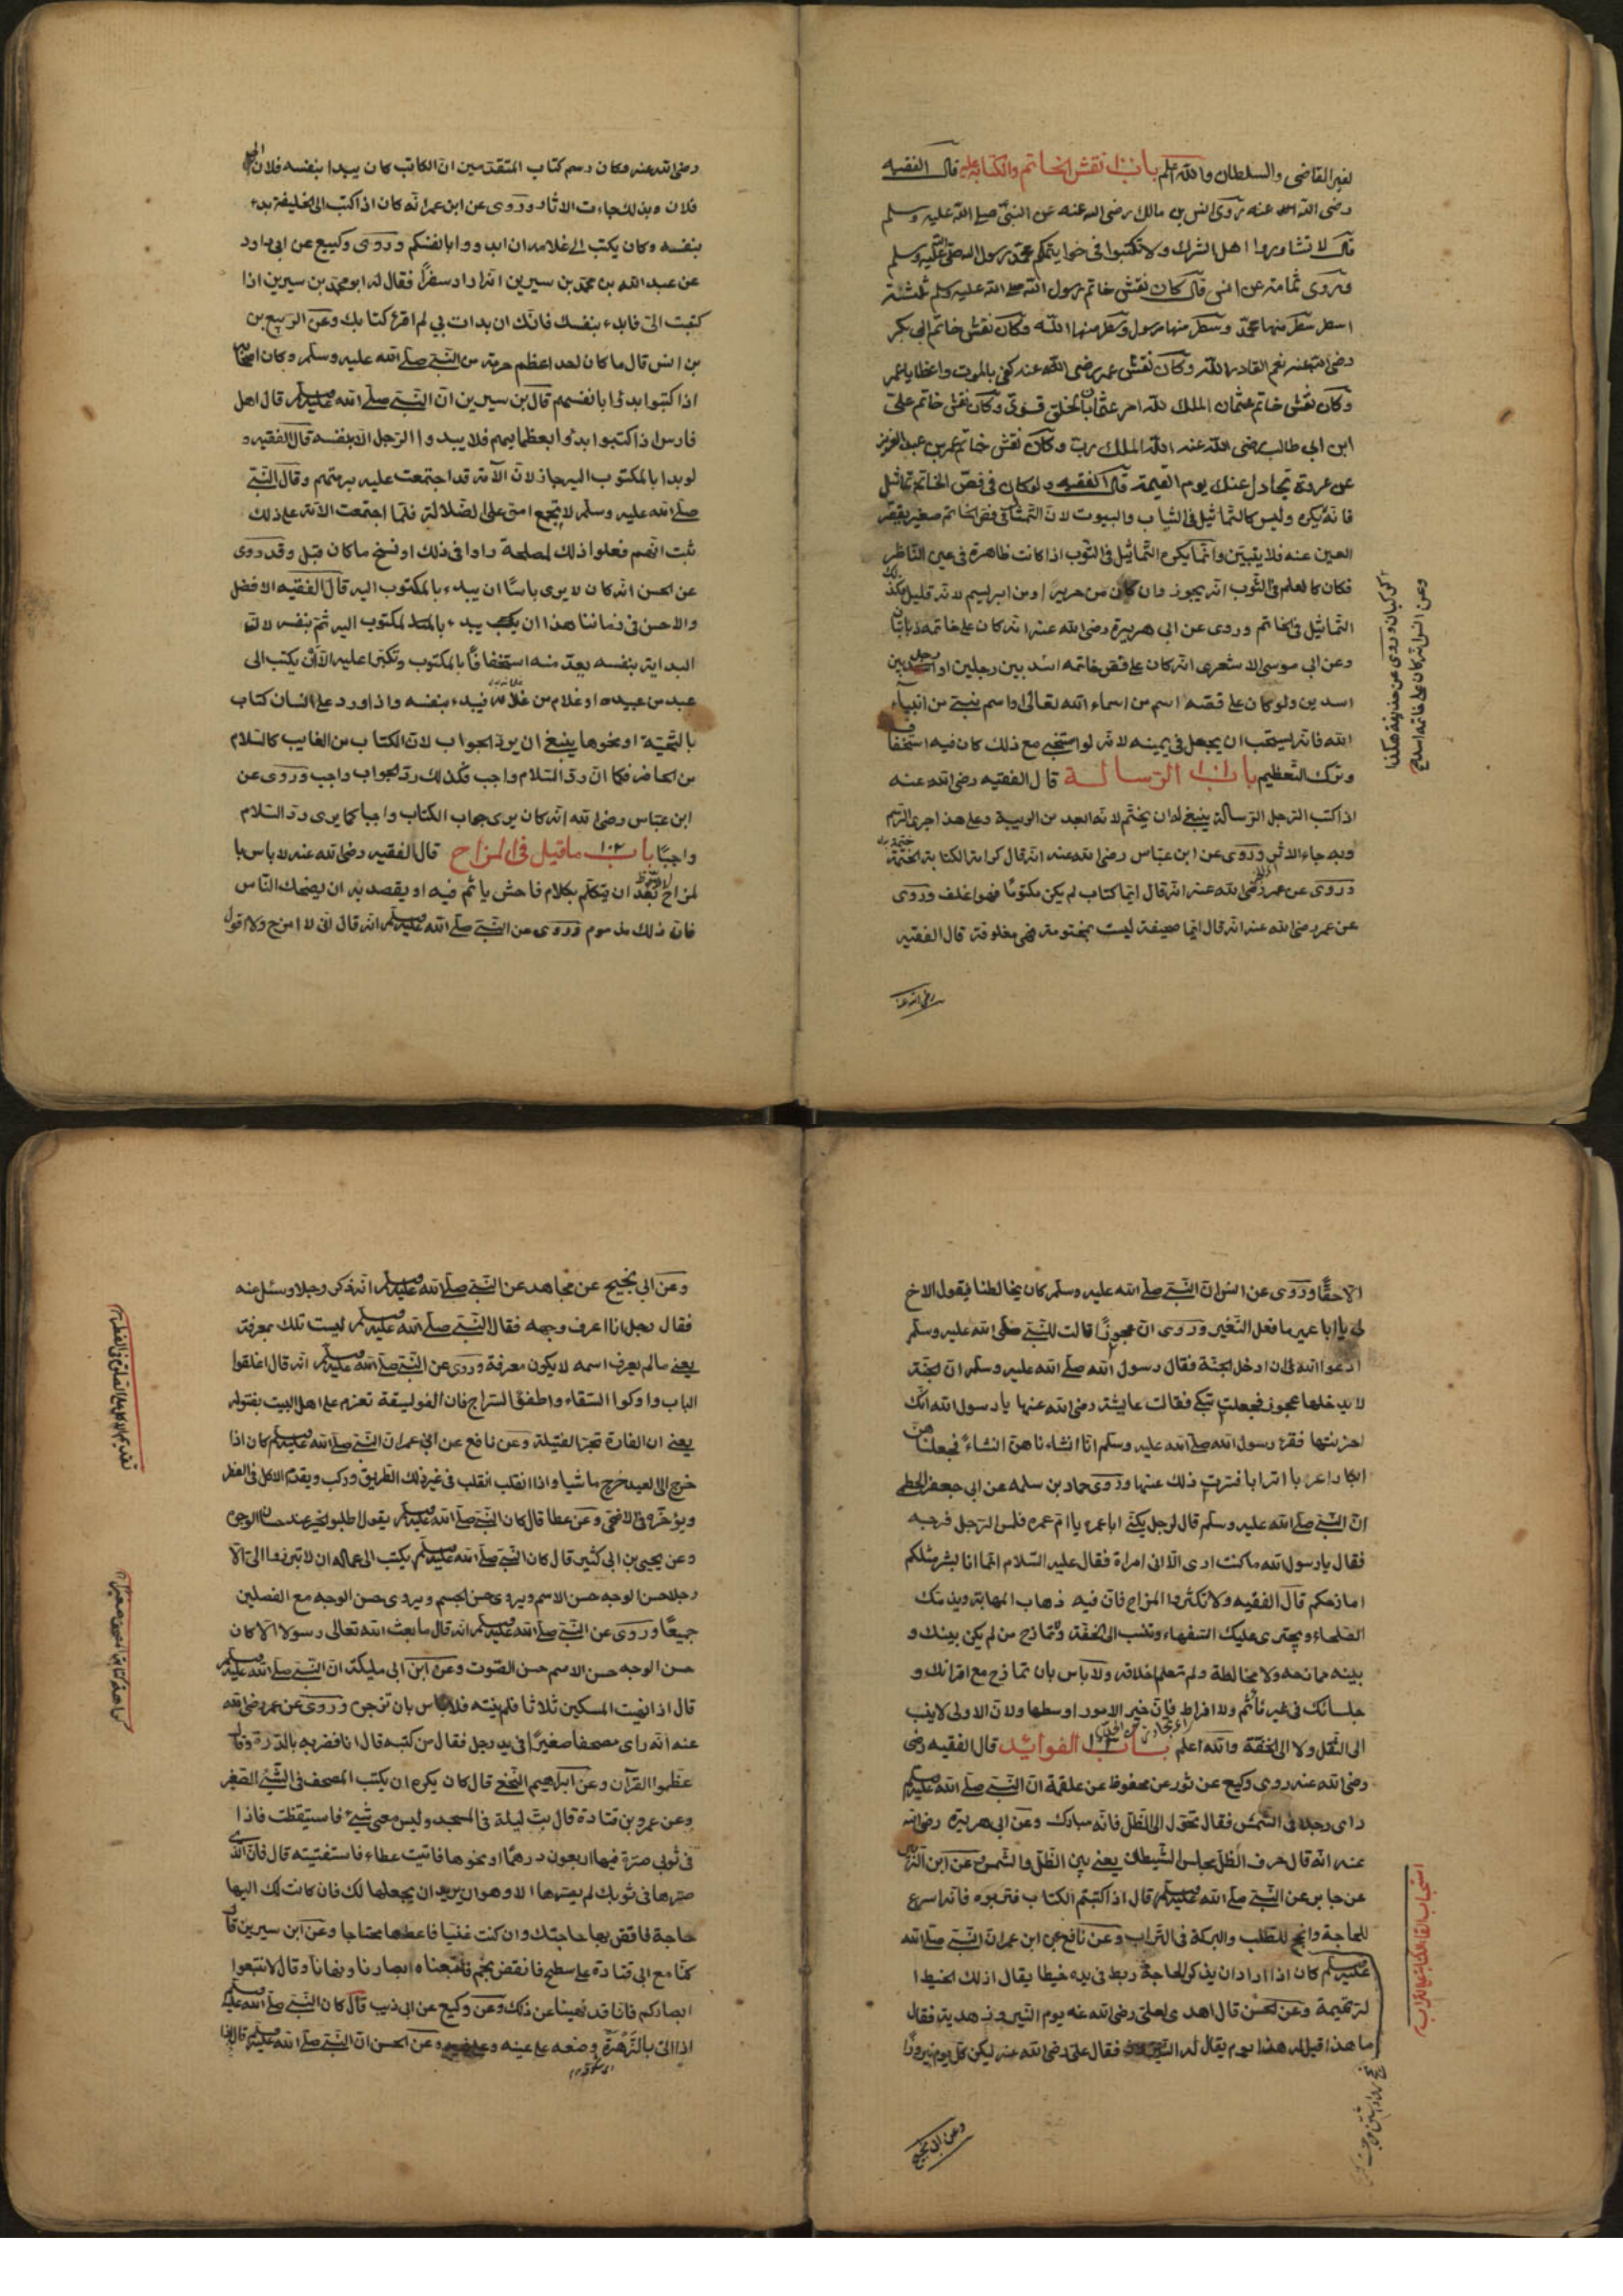 لغير القاضى والسلطان والله اعلم باب نقش الخاتم والكتابة عليه قال الفقيه
رضى الله عنه روى انس بن مالك رضى الله عنه عن النبى صلى الله عليه وسلم
قال لا تشاوروا اهل الشرك ولا تكتبوا فى خواتيمكم محمد رسول الله صلى الله عليه وسلم
وروى ثمامة عن انس قال كان نقش خاتم رسول الله صلى الله عليه وسلم ثلثة
اسطر سطر منها محمد وسطر منها رسول وسطر منها الله وكان نقش خاتم ابى بكر
رضى الله عنه نعم القادر الله وكان نقش عمر رضى الله عنه كفى بالموت واعظا يا عمر
وكان نقش خاتم عثمان الملك لله وكان نقش خاتم على
ابن ابى طالب رضى الله عنه الله الملك رب وكان نقش خاتم عمر بن عبد العزيز
عن عروة تجادل عنك يوم القيمة قال الفقيه ولو كان فى فص الخاتم تماثيل
فانه يكره وليس كالتماثيل فى الثياب والبيوت لان التمثال فى فص الخاتم صغير يقصر
العين عنه فلا يتبين وانما يكره التماثيل فى الثوب اذا كانت ظاهرة فى عين الناظر
فكان كالعلم فى الثوب انه يجوز وان كان من حرير او من ابريسم لانه قليل كذلك
التماثيل فى الخاتم وروى عن ابى هريرة رضى الله عنه انه كان على خاتمه ذبابتان
وعن ابى موسى الاشعرى انه كان على فص خاتمه اسد بين رجلين او رجل بين
اسدين ولو كان على فصه اسم من اسماء الله تعالى او اسم نبى من انبياء
الله فانه يستحب ان يجعل فى يمينه لانه لو استنجى مع ذلك كان فيه استخفا
وترك التعظيم باب الرسالة قال الفقيه رضى الله عنه
اذا كتب الرجل الرسالة ينبغى له ان يختم لانه ابعد من الريبة وعلى هذا اجرى الرسم
وبه جاء الاثر وروى عن ابن عباس رضى الله عنه انه قال كرامة الكتابة الختمة
وروى عن عمر رضى الله عنه انه قال ايما كتاب لم يكن مختوما فهو اغلف وروى
عن عمر رضى الله عنه انه قال ايما صحيفة ليست بمختومة فهى مغلوفة قال الفقيه
رضى الله عنه
وعن انس انه كان على خاتمه اسد
وروى عن حذيفة هكذا
رضى الله عنه وكان رسم كتاب المتقدمين ان الكاتب كان يبدا بنفسه فلان الى
فلان وبذلك جاءت الاثار وروى عن ابن عمر انه كان اذا كتب الى الخليفة بدء
بنفسه وكان يكتب الى غلامه ان ابدووا بانفسكم وروى وكيع عن ابى داود
عن عبد الله بن محمد بن سيرين انه اراد سفرا فقال له ابو محمد بن سيرين اذا
كتبت الى فابدء بنفسك فانك ان بدات بى لم اقرء كتابك وعن الربيع بن
بن انس قال ما كان احد اعظم حرمة من النبى صلى الله عليه وسلم وكان اصحابه
اذا كتبوا بدؤا بانفسهم قال بن سيرين ان النبى صلى الله عليه وسلم قال اهل
فارس اذا كتبوا ابدؤا بعظمايهم فلا يبدوا الرجل الا بنفسه قال الفقيه و
لو بدا بالمكتوب اليه جاز لان الامة قد اجتمعت عليه برمتهم وقال النبى
صلى الله عليه وسلم لا يجمع امتى على الضلالة فلما اجتمعت الامة على ذلك
ثبت انهم فعلوا ذلك لمصلحة راوا فى ذلك او نسخ ما كان قبل وقد روى
عن الحسن انه كان لا يرى باسا ان يبدء بالمكتوب اليه قال الفقيه الافضل
والاحسن فى زماننا هذا ان يبدء بالمكتوب اليه ثم بنفسه لان
البداية بنفسه يعد منه استخفافا بالمكتوب وتكبرا عليه الا ان يكتب الى
عبد من عبيده او غلام من غلامه فيبدء بنفسه واذا ورد على انسان كتاب
بالتحية او نحوها ينبغى ان يرد الجواب لان الكتاب من الغايب كالسلام
من الحاضر فكما ان رد السلام واجب فكذلك رد الجواب واجب وروى عن
ابن عباس رضى الله انه كان يرى جواب الكتاب واجبا كما يرى رد السلام
واجبا باب ١٠٢ ما قيل فى المزاح قال الفقيه رضى الله عنه لا باس با
لمزاح بعد ان يتكلم بكلام فاحش ياثم فيه او يقصد به ان يضحك الناس
فان ذلك مذموم وروى عن النبى صلى الله عليه وسلم انه قال انى لا امزح ولا اقول
الا حقا وروى عن انس ان النبى صلى الله عليه وسلم كان يخالطنا فيقول الاخ
لى يا ابا عمير ما فعل النغير وروى ان عجوزا قالت للنبى صلى الله عليه وسلم
ادعوا الله لى ان ادخل الجنة فقال رسول الله صلى الله عليه وسلم ان الجنة
لا يدخلها عجوز فجعلت تبكى فقالت عايشة رضى الله عنها يا رسول الله انك
احزنتها فقرء رسول الله صلى الله عليه وسلم انا انشاناهن انشاء فجعلناهن
ابكارا عربا اترابا فسرت ذلك عنها وروى حماد بن سلمه عن ابى جعفر الخطمى
ان النبى صلى الله عليه وسلم قال لرجل يكنى ابا عمره يا ام عمره فلمس الرجل فرجه
فقال يا رسول الله ما كنت ارى الا انى امراة فقال عليه السلام انما انا بشر مثلكم
امازحكم قال الفقيه ولا تكثروا المزاح فان فيه ذهاب المهابة ويذمك
الصلحاء ويجترى عليك السفهاء وتنسب الى الخفة ولا تمازح من لم يكن بينك و
بينه ممازحه ولا مخالطة ولم تعلم اخلاقه ولا باس بان تمازح مع اقرانك و
جلسائك فى غير ماثم ولا افراط فان خير الامور اوسطها ولان الاولى لا ينسب
الى الثقل ولا الى الخفة والله اعلم باب الفوائد قال الفقيه رضى
رضى الله عنه روى وكيع عن ثور عن محفوظ عن علقمة ان النبى صلى الله عليه وسلم
راى رجلا فى الشمس فقال تحول الى الظل فانه مبارك وعن ابى هريرة رضى الله
عنه انه قال حرف الظل مجلس الشيطان يعنى بين الظل والشمس وعن ابن الزبير
عن جابر عن النبى صلى الله عليه وسلم قال اذا كتبتم الكتاب فتربوه فانه اسرع
للحاجة وانجح للطلب والبركة فى التراب وعن نافع عن ابن عمر ان النبى صلى الله
عليه وسلم كان اذا اراد ان يذكر الحاجة ربط فى يده خيطا يقال لذلك الخيط ا
لرتيمة وعن الحسن قال اهدى لعلى رضى الله عنه يوم النيروز هدية فقال
ما هذا قيل له هذا يوم يقال له النيروز فقال على رضى الله عنه ليكن كل يوم نيروزا
وعن ابى نجيح
استحباب القاء الكتابة فى التراب
وعن ابى نجيح عن مجاهد عن النبى صلى الله عليه وسلم انه ذكر رجلا وسئل عنه
فقال رجل انا اعرف وجهه فقال النبى صلى الله عليه وسلم ليست تلك بمعرفة
يعنى ما لم يعرف اسمه لا يكون معرفة وروى عن النبى صلى الله عليه وسلم انه قال اغلقوا
الباب واوكوا السقاء واطفؤ السراج فان الفويسقة تضرم على اهل البيت بفتوله
يعنى ان الفارة تجر الفتيلة وعن نافع عن ابن عمر ان النبى صلى الله عليه وسلم كان اذا
خرج الى العيد خرج ماشيا واذا انقلب انقلب فى غير ذلك الطريق وركب ويقدم الاكل فى الفطر
ويؤخره فى الاضحى وعن عطا قال كان النبى صلى الله عليه وسلم يقول اطلبوا الخير عند حسان الوجوه
وعن يحيى بن ابى كثير قال كان النبى صلى الله عليه وسلم يكتب الى عماله ان لا تبردوا الى الا
رجلا حسن الوجه حسن الاسم ويروى حسن الجسم ويروى حسن الوجه مع الفصلين
جميعا وروى عن النبى صلى الله عليه وسلم انه قال ما بعث الله تعالى رسولا الا كان
حسن الوجه حسن الاسم حسن الصوت وعن ابن ابى مليكة ان النبى صلى الله عليه وسلم
قال اذا نهيت المسكين ثلاثا فلم ينته فلا باس بان تزجره وروى عن عمر رضى الله
عنه انه راى مصحفا صغيرا فى يد رجل فقال من كتبه قال انا فضربه بالدرة وقال
عظموا القرآن وعن ابراهيم النخعى قال كان يكره ان يكتب المصحف فى الشىء الصغير
وعن عمرو بن قتادة قال بت ليلة فى المسجد وليس معى شىء فاستيقظت فاذا
فى ثوبى صرة فيها اربعون درهما او نحوها فاتيت عطاء فاستفتيته قال فان الذى
صرها فى ثوبك لم يصرها الا وهو ان يريد ان يجعلها لك فان كانت لك اليها
حاجة فاقض بها حاجتك وان كنت غنيا فاعطها محتاجا وعن ابن سيرين قال
كنا مع ابى قتادة على سطح فانقض نجم فاتبعناه ابصارنا ونهانا وقال لا تتبعوا
ابصاركم فانا قد نهينا عن ذلك وعن وكيع عن ابى ذيب قال كان النبى صلى الله عليه وسلم
اذا اتى بالزهرة وضعه على عينه وعن الحسن ان النبى صلى الله عليه وسلم قال اذا